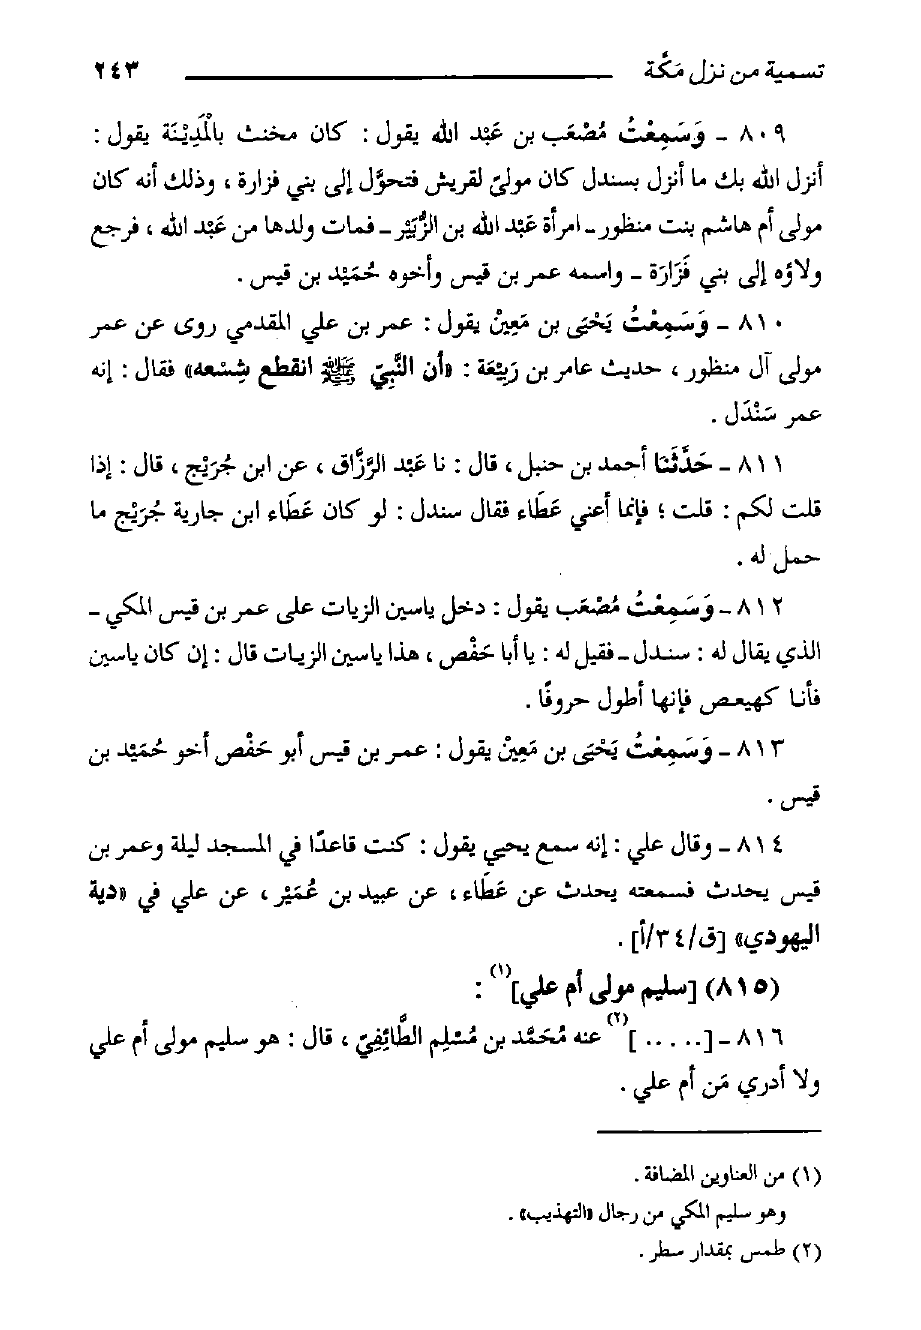 تسمية من نزل مَكَّة ٢٤٣
٨٠٩ - وَسَمِعْتُ مُصْعَب بن عَبْد الله يقول : كان مخنث بالْمَدِيْنَة يقول :
أنزل الله بك ما أنزل بسندل كان مولىً لقريش فتحوَّل إلى بني فزارة ، وذلك أنه كان
مولى أم هاشم بنت منظور - امرأة عَبْد الله بن الزُّبَيْر - فمات ولدها من عَبْد الله ، فرجع
ولاؤه إلى بني فَزَارَة - واسمه عمر بن قيس وأخوه حُمَيْد بن قيس .
٨١٠ - وَسَمِعْتُ يَحْيَى بن مَعِيْنْ يقول : عمر بن علي المقدمي روى عن عمر
مولى آل منظور ، حديث عامر بن رَبِيْعَة : «أن النَّبِيّ ﷺ انقطع شِسْعه» فقال : إنه
عمر سَنْدَل .
٨١١ - حَدَّثَنَا أحمد بن حنبل ، قال : نا عَبْد الرَّزَّاق ، عن ابن جُرَيْج ، قال : إذا
قلت لكم : قلت ؛ فإنما أعني عَطَاء فقال سندل : لو كان عَطَاء ابن جارية جُرَيْج ما
حمل له .
٨١٢ - وَسَمِعْتُ مُصْعَب يقول : دخل ياسين الزيات على عمر بن قيس المكي -
الذي يقال له : سندل - فقيل له : يا أبا حَفْص ، هذا ياسين الزيات قال : إن كان ياسين
فأنا كهيعص فإنها أطول حروفًا .
٨١٣ - وَسَمِعْتُ يَحْيَى بن مَعِيْنْ يقول : عمر بن قيس أبو حَفْص أخو حُمَيْد بن
قيس .
٨١٤ - وقال علي : إنه سمع يحيي يقول : كنت قاعدًا في المسجد ليلة وعمر بن
قيس يحدث فسمعته يحدث عن عَطَاء ، عن عبيد بن عُمَيْر ، عن علي في «دية
اليهودي» [ق/٣٤/أ] .
(٨١٥) [سليم مولى أم علي](١) :
٨١٦ - [.....](٢) عنه مُحَمَّد بن مُسْلِم الطَّائِفِيّ ، قال : هو سليم مولى أم علي
ولا أدري مَن أم علي .
(١) من العناوين المضافة .
وهو سليم المكي من رجال «التهذيب» .
(٢) طمس بمقدار سطر .